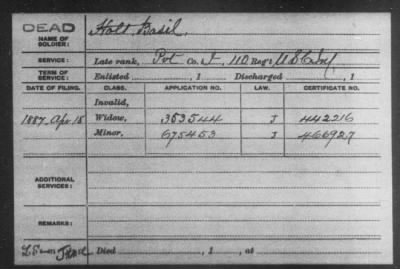 DEAD
NAME OF SOLDIER: Holt Basil,
SERVICE: Late rank, Pvt Co. I, 110 Reg't U S C Inf
TERM OF SERVICE: Enlisted , 1 Discharged , 1
DATE OF FILING. CLASS. APPLICATION NO. LAW. CERTIFICATE NO.
Invalid,
1887, Apr 18 Widow, 353544 J 442216
Minor, 675453 J 466927
ADDITIONAL SERVICES:
REMARKS:
Died , 1 , at